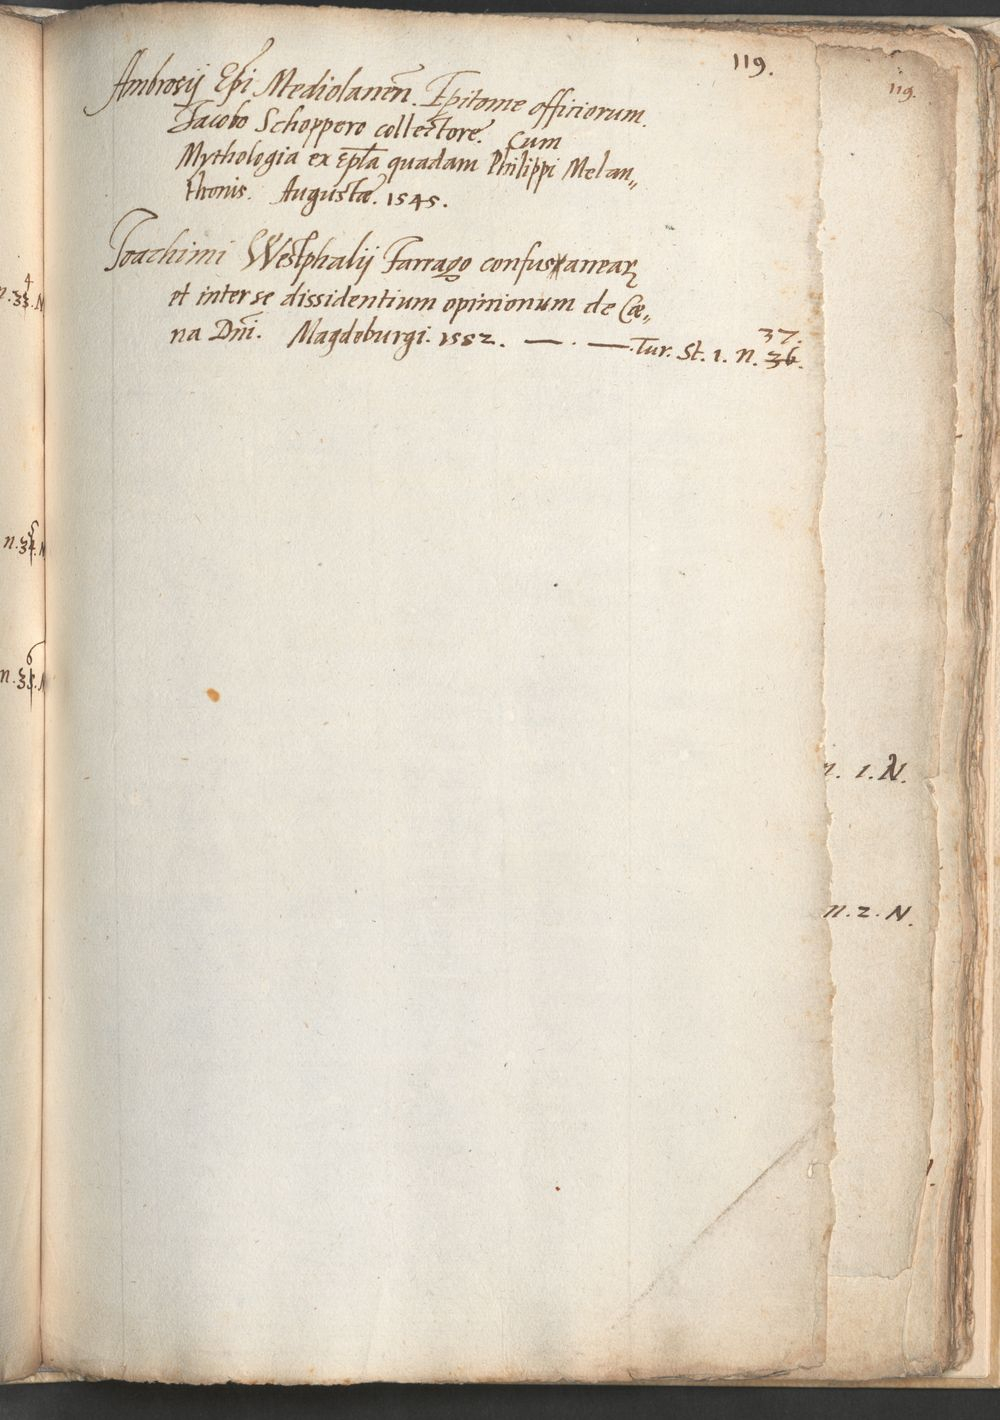 119.
Ambrosij Ep̃i Mediolaneñ. Epitome officiorum.
Jacobo Schoppero collectore. Cum
Mythologia ex ep̃la quadam Philippi Melan„
thonis. Augustæ. 1545.
Joachimi Westphalij Farrago confusanearꝝ
et inter se dissidentium opinionum de Cœ„
na Dñi. Magdeburgi. 1552. — . — . Tur. St. 1. n. 36.
37.
119.
n. 1. N.
n. 2. N.
4
n. 33. N
5
n. 34. N
6
n. 35. N